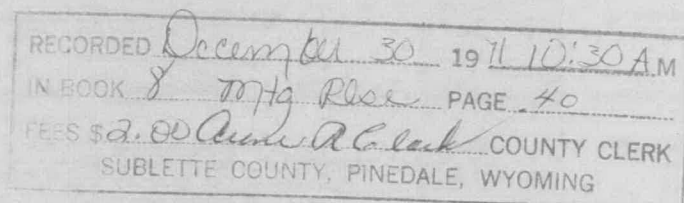 RECORDED December 30 1971 10:30 A.M
IN BOOK 8 Mtg Rlse PAGE 40
FEES $2.00 A Clark COUNTY CLERK
SUBLETTE COUNTY, PINEDALE, WYOMING